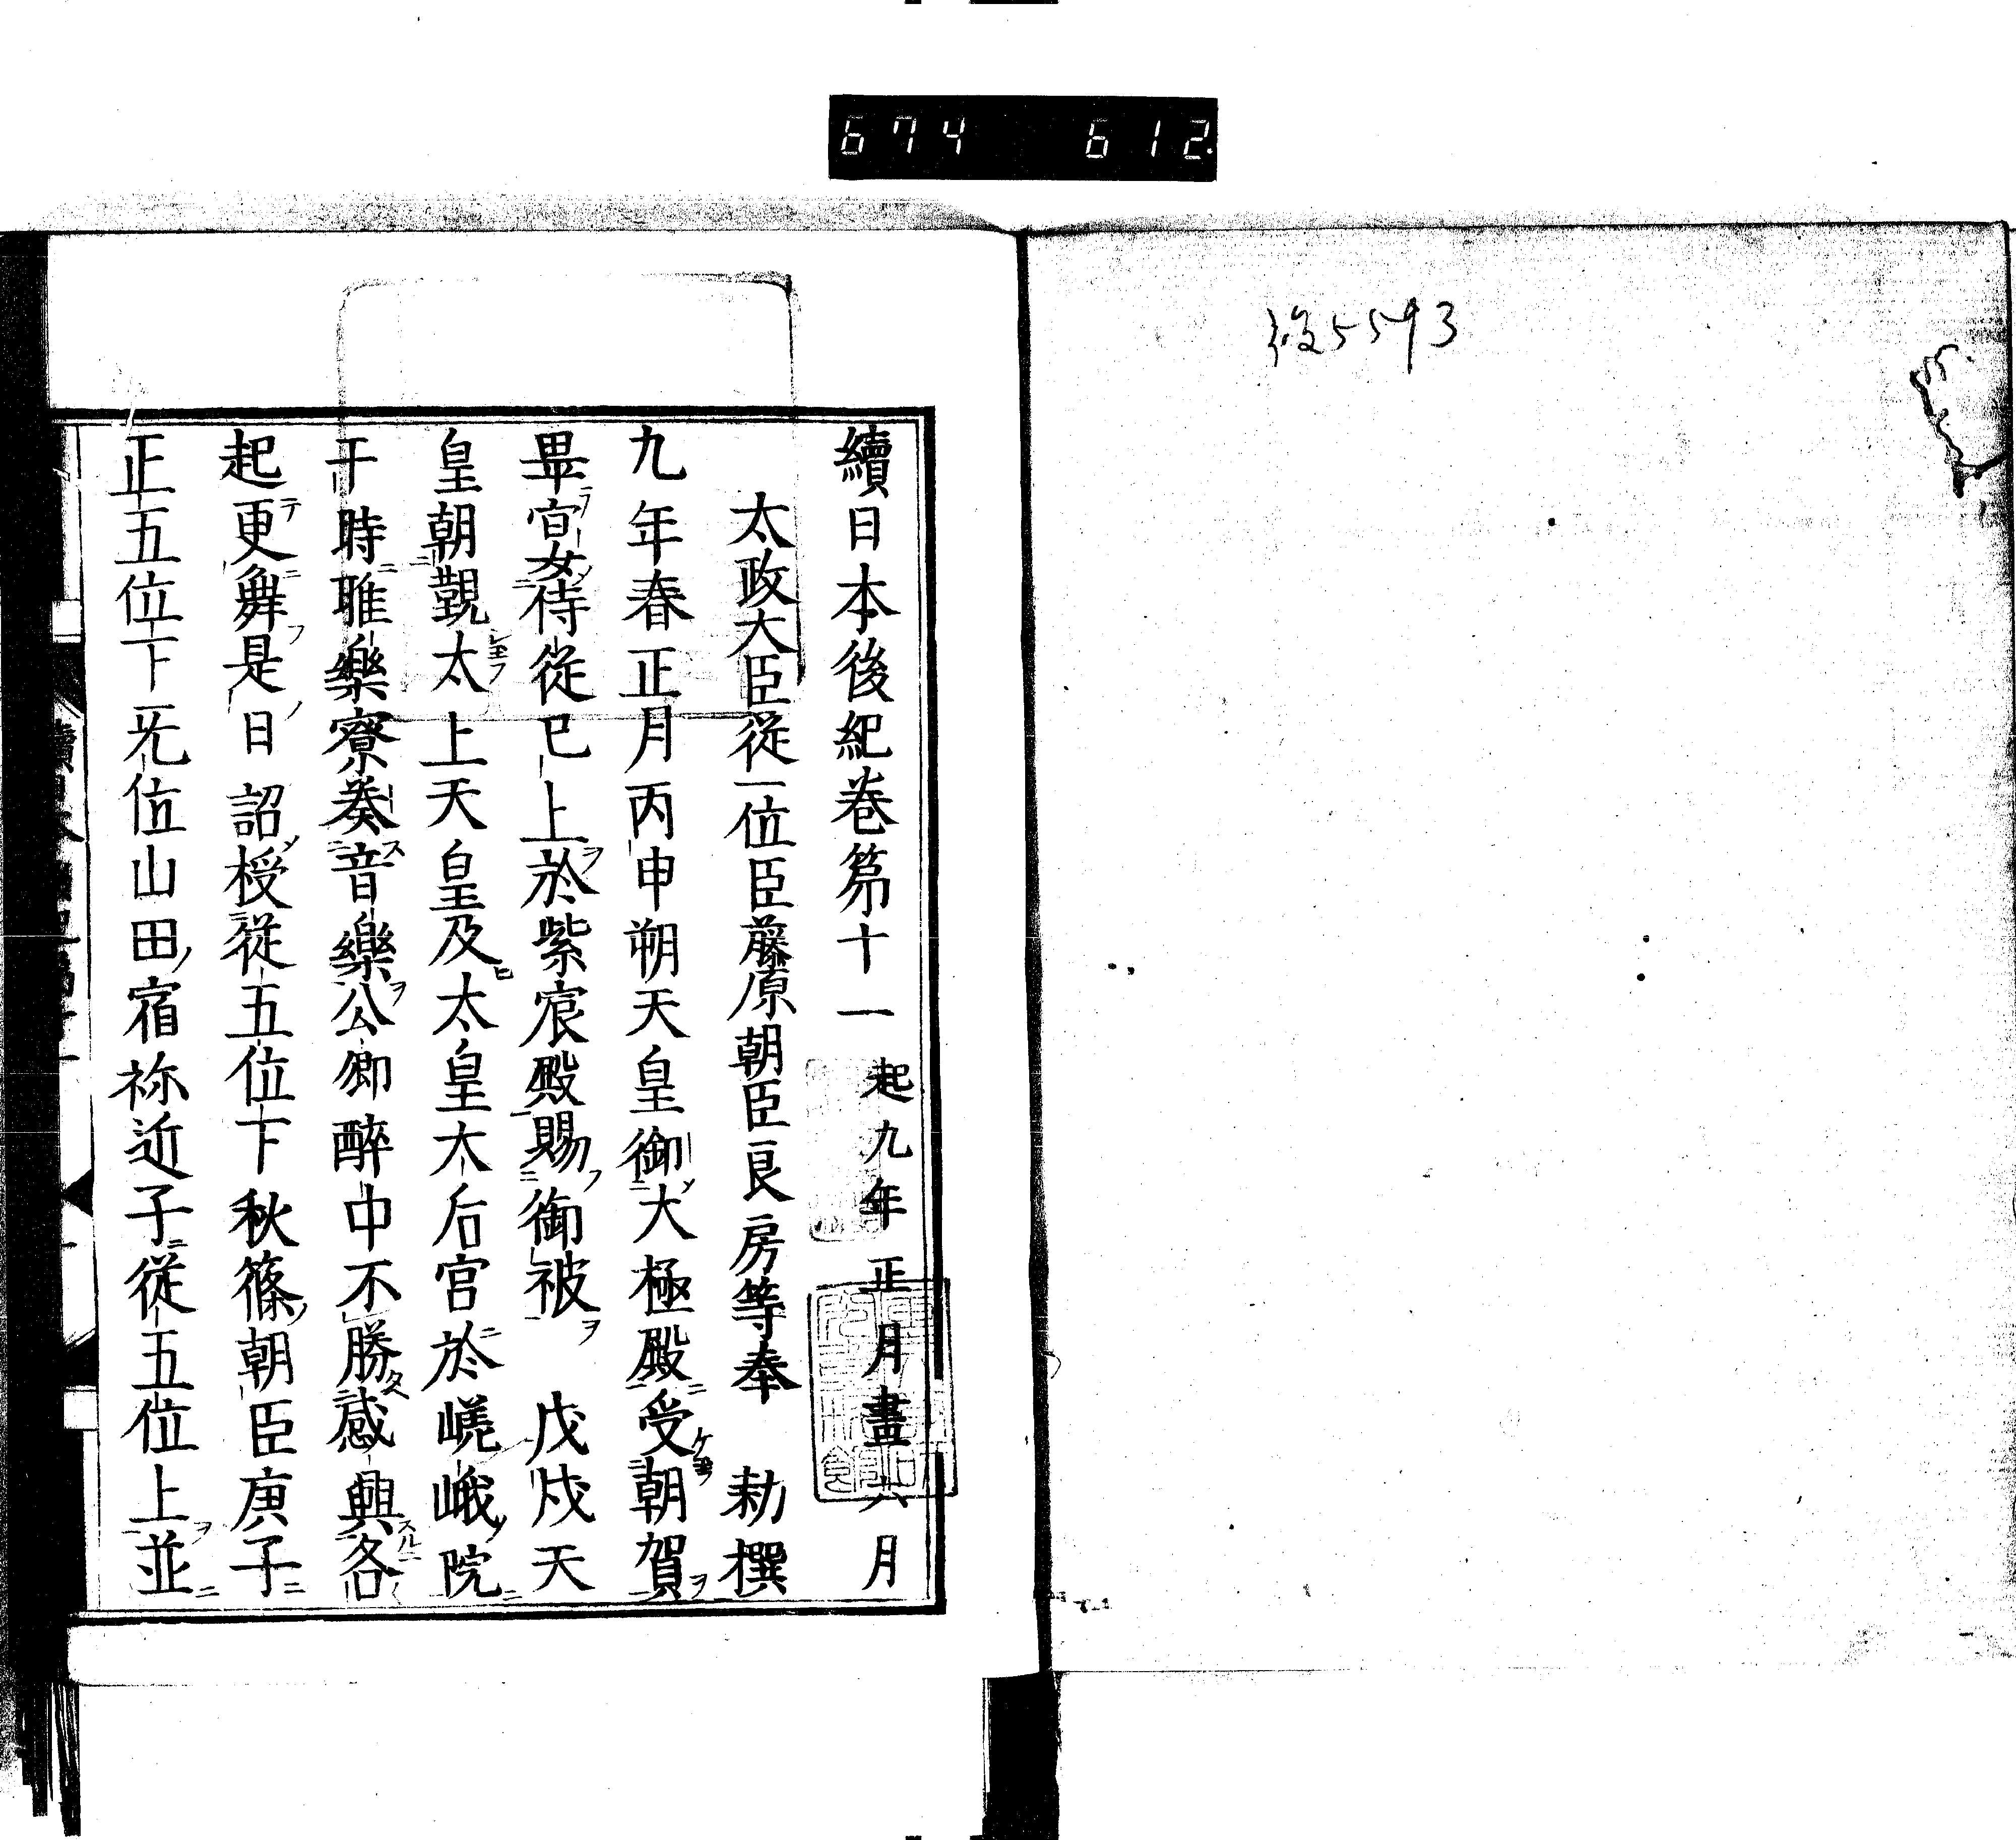 674 612
5593
續日本後紀巻第十一 起九年正月盡六月
太政大臣從一位臣藤原朝臣良房等奉 勅撰
九年春正月丙申朔天皇御大極殿受朝賀
畢宴侍從已上於紫宸殿賜御被 戊戌天
皇朝覲太上天皇及太皇太后宮於嵯峨院
于時雅樂寮奏音樂公卿醉中不勝感興各
起更舞是日 詔授從五位下秋篠朝臣庚子
正五位下无位山田宿祢近子從五位上並